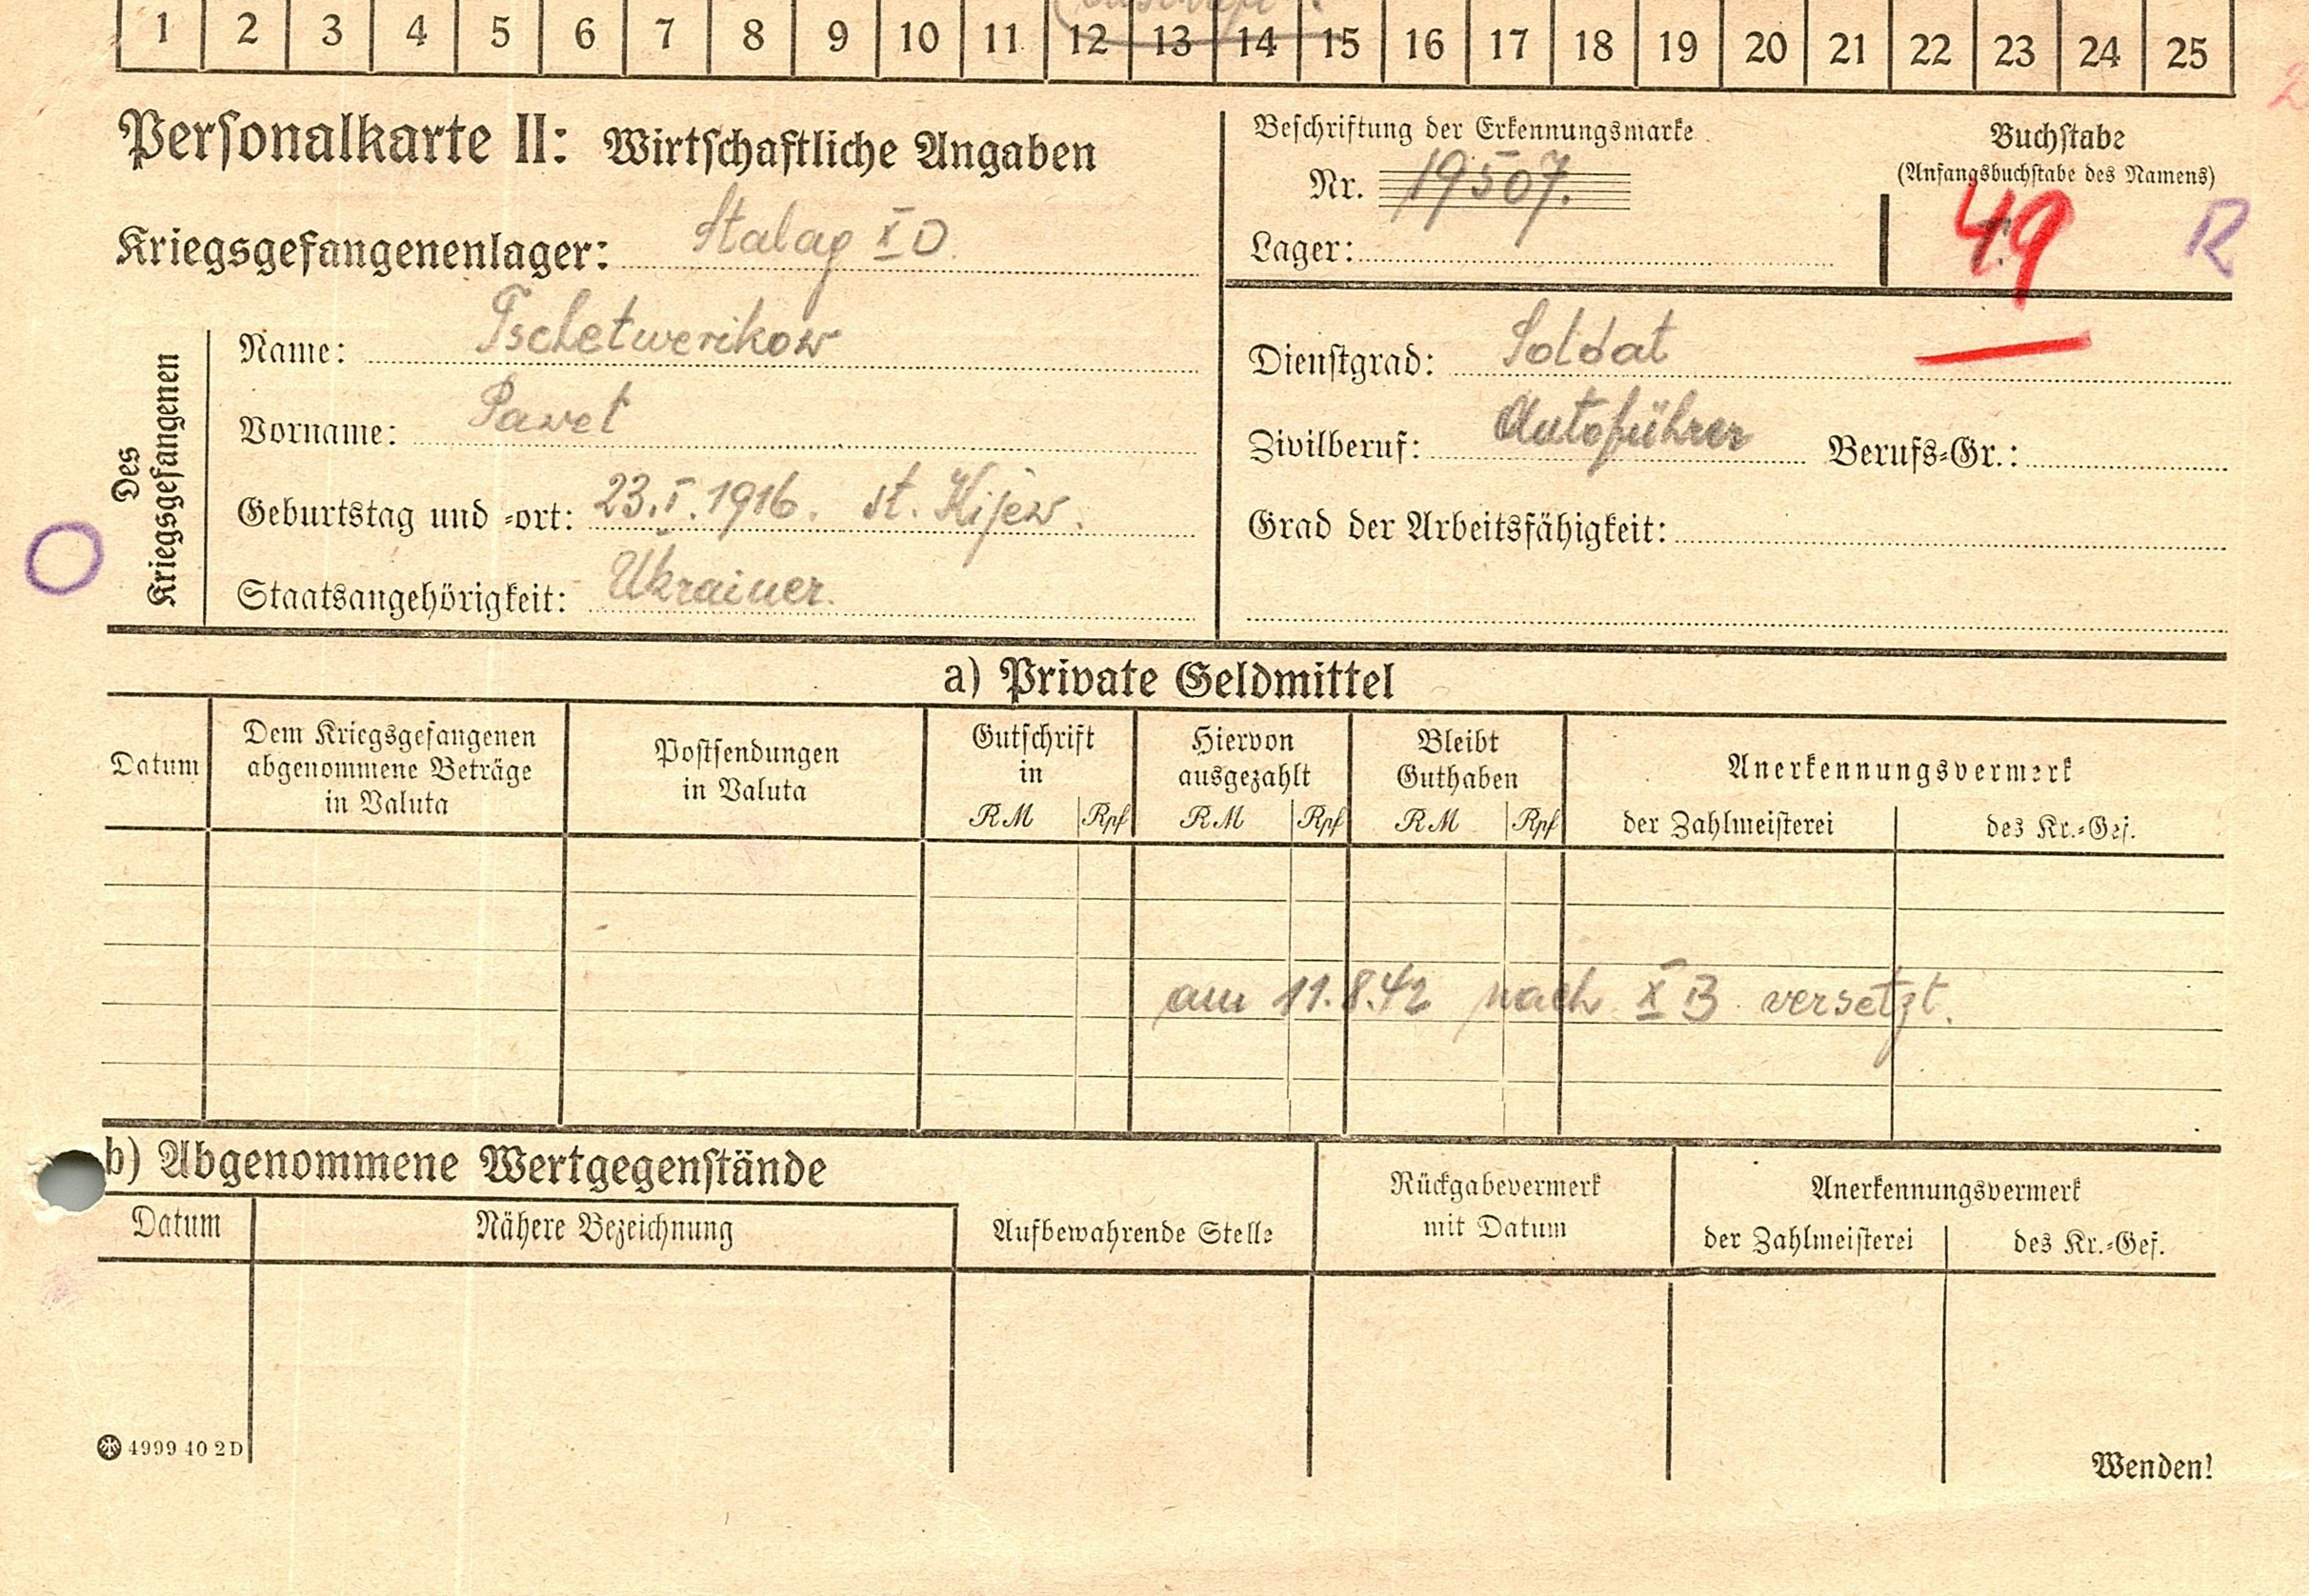 1 2 3 4 5 6 7 8 9 10 11 12 13 14 15 16 17 18 19 20 21 22 23 24 25
Personalkarte II: Wirtschaftliche Angaben
Kriegsgefangenenlager: Stalag X D.
Beschriftung der Erkennungsmarke
Nr. 19507.
Lager:
Buchstabe
(Anfangsbuchstabe des Namens)
49
R
Des
Kriegsgefangenen
Name: Tschetwerikow
Vorname: Pawet
Geburtstag und -ort: 23.I.1916. st. Kijew.
Staatsangehörigkeit: Ukrainer.
Dienstgrad: Soldat
Zivilberuf: Autoführer Berufs-Gr.:
Grad der Arbeitsfähigkeit:
a) Private Geldmittel
Datum
Dem Kriegsgefangenen
abgenommene Beträge
in Valuta
Postsendungen
in Valuta
Gutschrift
in
RM Rpf
Hiervon
ausgezahlt
RM Rpf
Bleibt
Guthaben
RM Rpf
Anerkennungsvermerk
der Zahlmeisterei des Kr.-Gef.
am 11.8.42 nach X B versetzt.
b) Abgenommene Wertgegenstände
Datum
Nähere Bezeichnung
Aufbewahrende Stelle
Rückgabevermerk
mit Datum
Anerkennungsvermerk
der Zahlmeisterei des Kr.-Gef.
4999 40 2 D
Wenden!